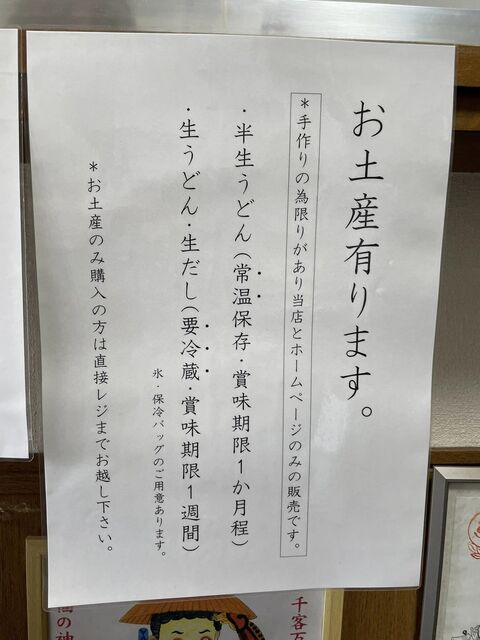 お土産有ります。
＊手作りの為限りがあり当店とホームページのみの販売です。
・半生うどん(常温保存・賞味期限1か月程)
・生うどん・生だし(要冷蔵・賞味期限1週間)
氷・保冷バッグのご用意あります。
＊お土産のみ購入の方は直接レジまでお越し下さい。
千客万
の神